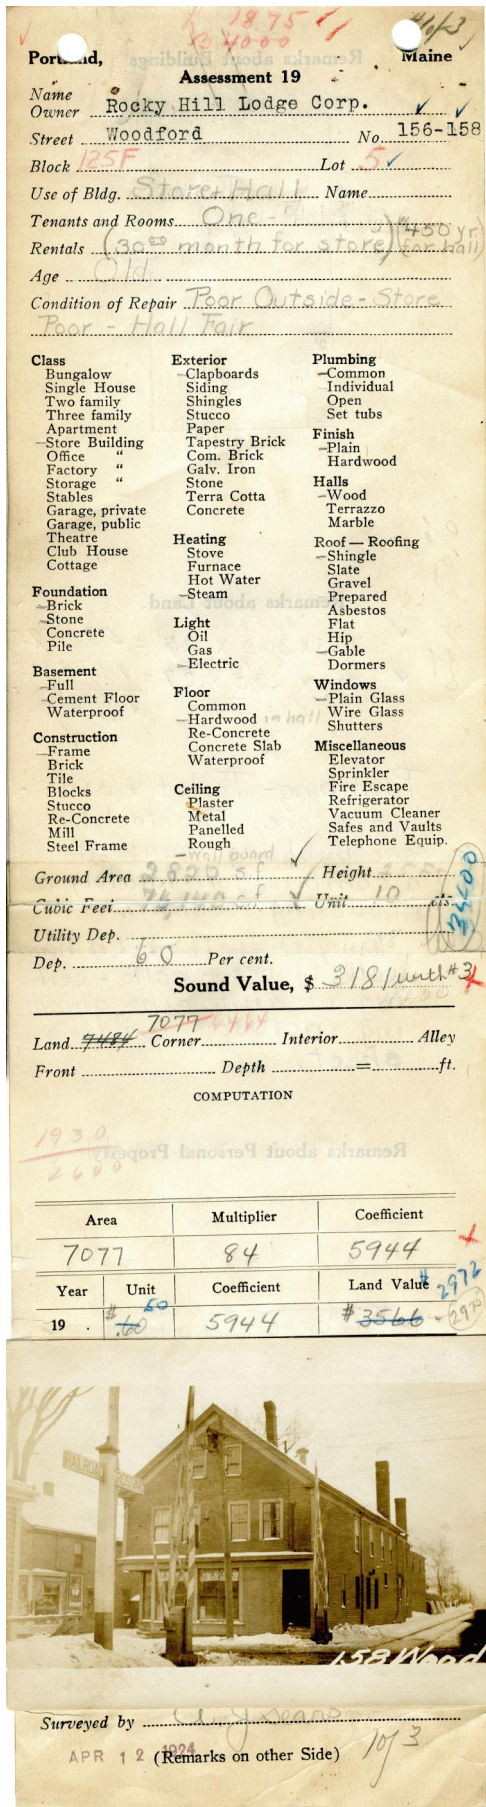 L 1875
B 4000
1 of 3
Portland, Maine
Assessment 19
Name
Owner Rocky Hill Lodge Corp.
Street Woodford No. 156-158
Block 125F Lot 5
Use of Bldg. Store + Hall Name
Tenants and Rooms One -
Rentals (30.00 month for store) ($450 yr. for hall)
Age Old
Condition of Repair Poor Outside - Store
Poor - Hall Fair
Class
Bungalow
Single House
Two family
Three family
Apartment
Store Building
Office "
Factory "
Storage "
Stables
Garage, private
Garage, public
Theatre
Club House
Cottage
Foundation
Brick
Stone
Concrete
Pile
Basement
Full
Cement Floor
Waterproof
Construction
Frame
Brick
Tile
Blocks
Stucco
Re-Concrete
Mill
Steel Frame
Exterior
Clapboards
Siding
Shingles
Stucco
Paper
Tapestry Brick
Com. Brick
Galv. Iron
Stone
Terra Cotta
Concrete
Heating
Stove
Furnace
Hot Water
Steam
Light
Oil
Gas
Electric
Floor
Common
Hardwood in hall
Re-Concrete
Concrete Slab
Waterproof
Ceiling
Plaster
Metal
Panelled
Rough
wall board
Plumbing
Common
Individual
Open
Set tubs
Finish
Plain
Hardwood
Halls
Wood
Terrazzo
Marble
Roof — Roofing
Shingle
Slate
Gravel
Prepared
Asbestos
Flat
Hip
Gable
Dormers
Windows
Plain Glass
Wire Glass
Shutters
Miscellaneous
Elevator
Sprinkler
Fire Escape
Refrigerator
Vacuum Cleaner
Safes and Vaults
Telephone Equip.
Ground Area 2820 s.f. Height
Cubic Feet 74,140 c.f. Unit 10 cts.
Utility Dep.
Dep. 60 Per cent.
Sound Value, $ 3181 with #3
7077 4464
Land 7484 Corner Interior Alley
Front Depth = ft.
COMPUTATION
1930
2600
Remarks about Personal Property
Area Multiplier Coefficient
7077 84 5944
Year Unit Coefficient Land Value $2972
19 . $.60 50 5944 $3566 - 2975
RAILROAD CROSSING
158 Wood
Surveyed by
APR 12 1924 (Remarks on other Side) 1 of 3